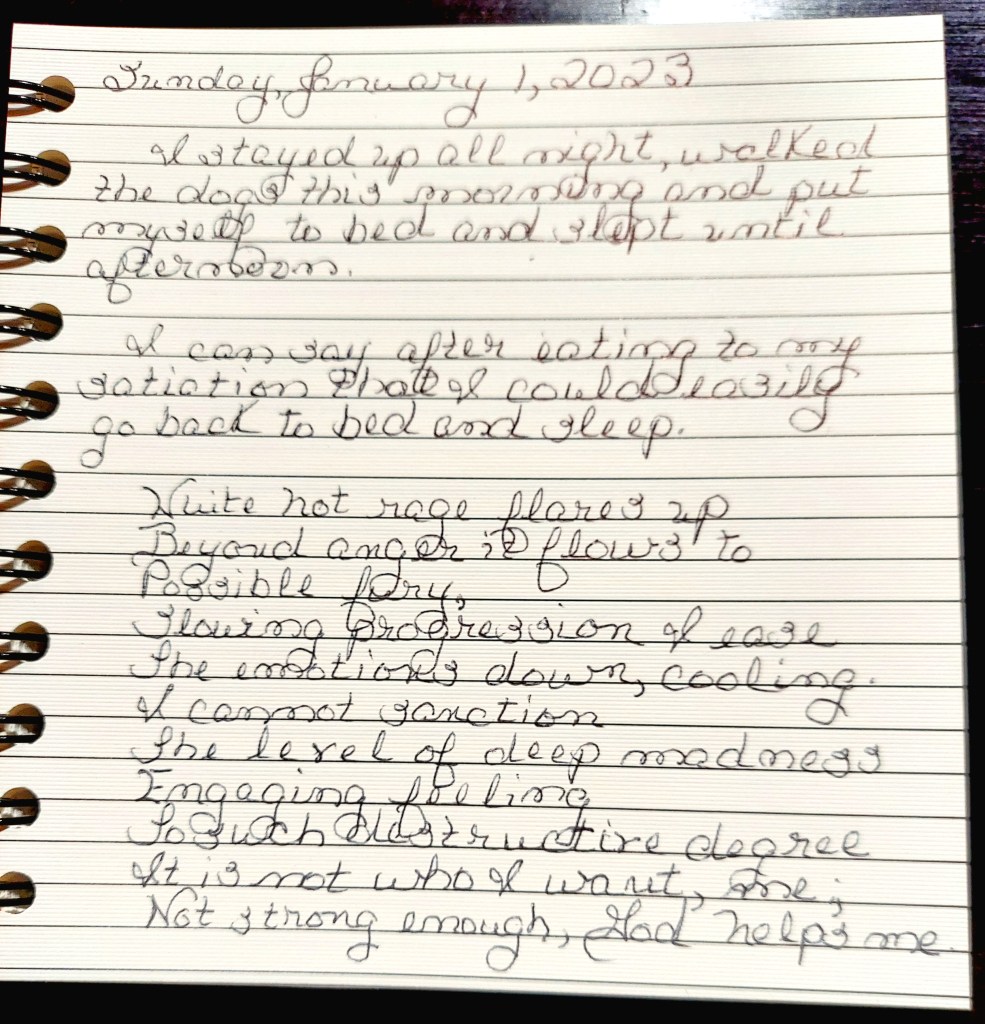 Sunday, January 1, 2023
I stayed up all night, walked
the dogs this morning and put
myself to bed and slept until
afternoon.
I can say after eating to my
satiation that I could easily
go back to bed and sleep.
White hot rage flares up
Beyond anger it flows to
Possible fury,
Slowing progression of ease
The emotions down, cooling.
I cannot sanction
The level of deep madness
Engaging feeling
To such destructive degree
It is not who I want, me;
Not strong enough, God helps me.